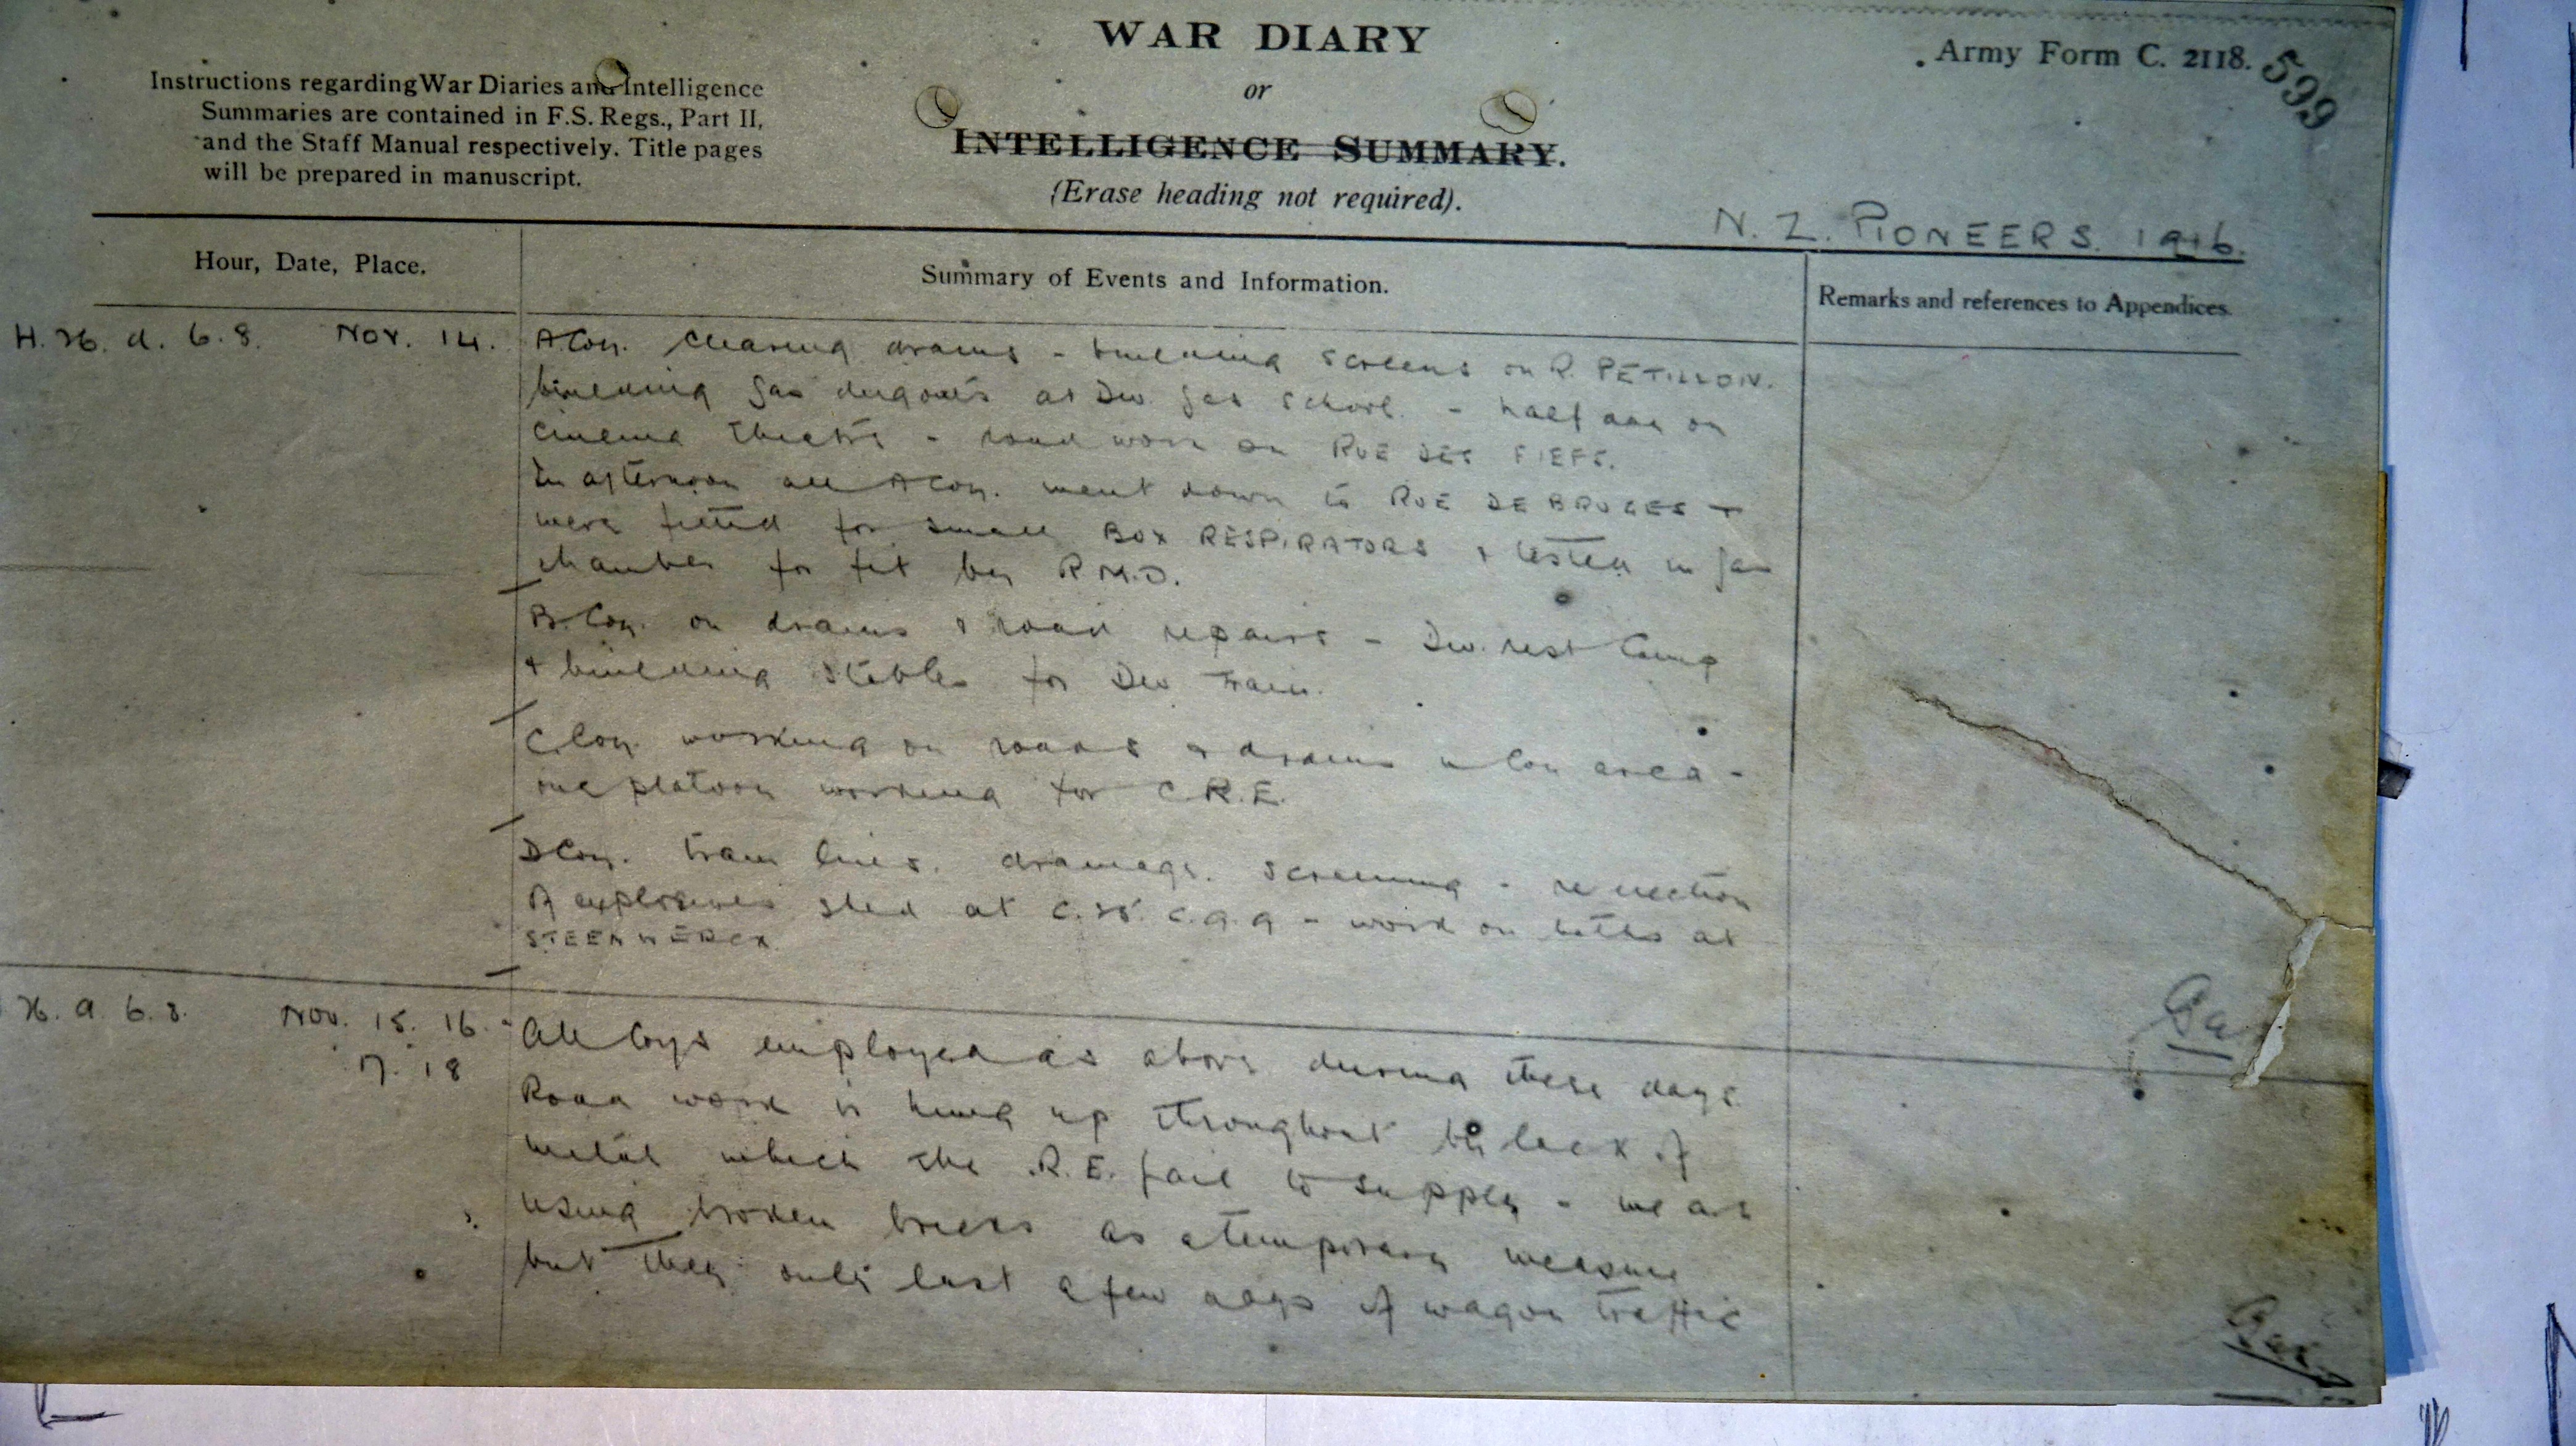 WAR DIARY
or
INTELLIGENCE SUMMARY.
(Erase heading not required).
Instructions regarding War Diaries and Intelligence
Summaries are contained in F.S. Regs., Part II,
and the Staff Manual respectively. Title pages
will be prepared in manuscript.
Army Form C. 2118.
599
N. Z. PIONEERS. 1916.
Hour, Date, Place.
Summary of Events and Information.
Remarks and references to Appendices.
H. 36. a. 6.8. Nov. 14.
A Coy. clearing drains - building screens on R. PETILLON.
building gas dugouts at Div. gas school. - half day on
cinema theatre - road work on RUE DES FIEFS.
In afternoon all A Coy. went down to RUE DE BRUGES +
were fitted for small BOX RESPIRATORS & tested in gas
chamber for fit by R.M.O.
B. Coy. on drains & road repairs - Div. rest Camp
& building stables for Div Train.
C. Coy. working on roads & drains in Coy area -
one platoon working for C.R.E.
D Coy. tram lines. drainage. screening - re erection
of explosives shed at C. 25. C. 9. 9 - work on baths at
STEENWERCK
36. a. 6.8. Nov. 15. 16.
17. 18
All Coys employed as above during these days.
Road work is hung up throughout by lack of
metal which the R.E. fail to supply - we are
using broken bricks as a temporary measure
but they only last a few days of wagon traffic